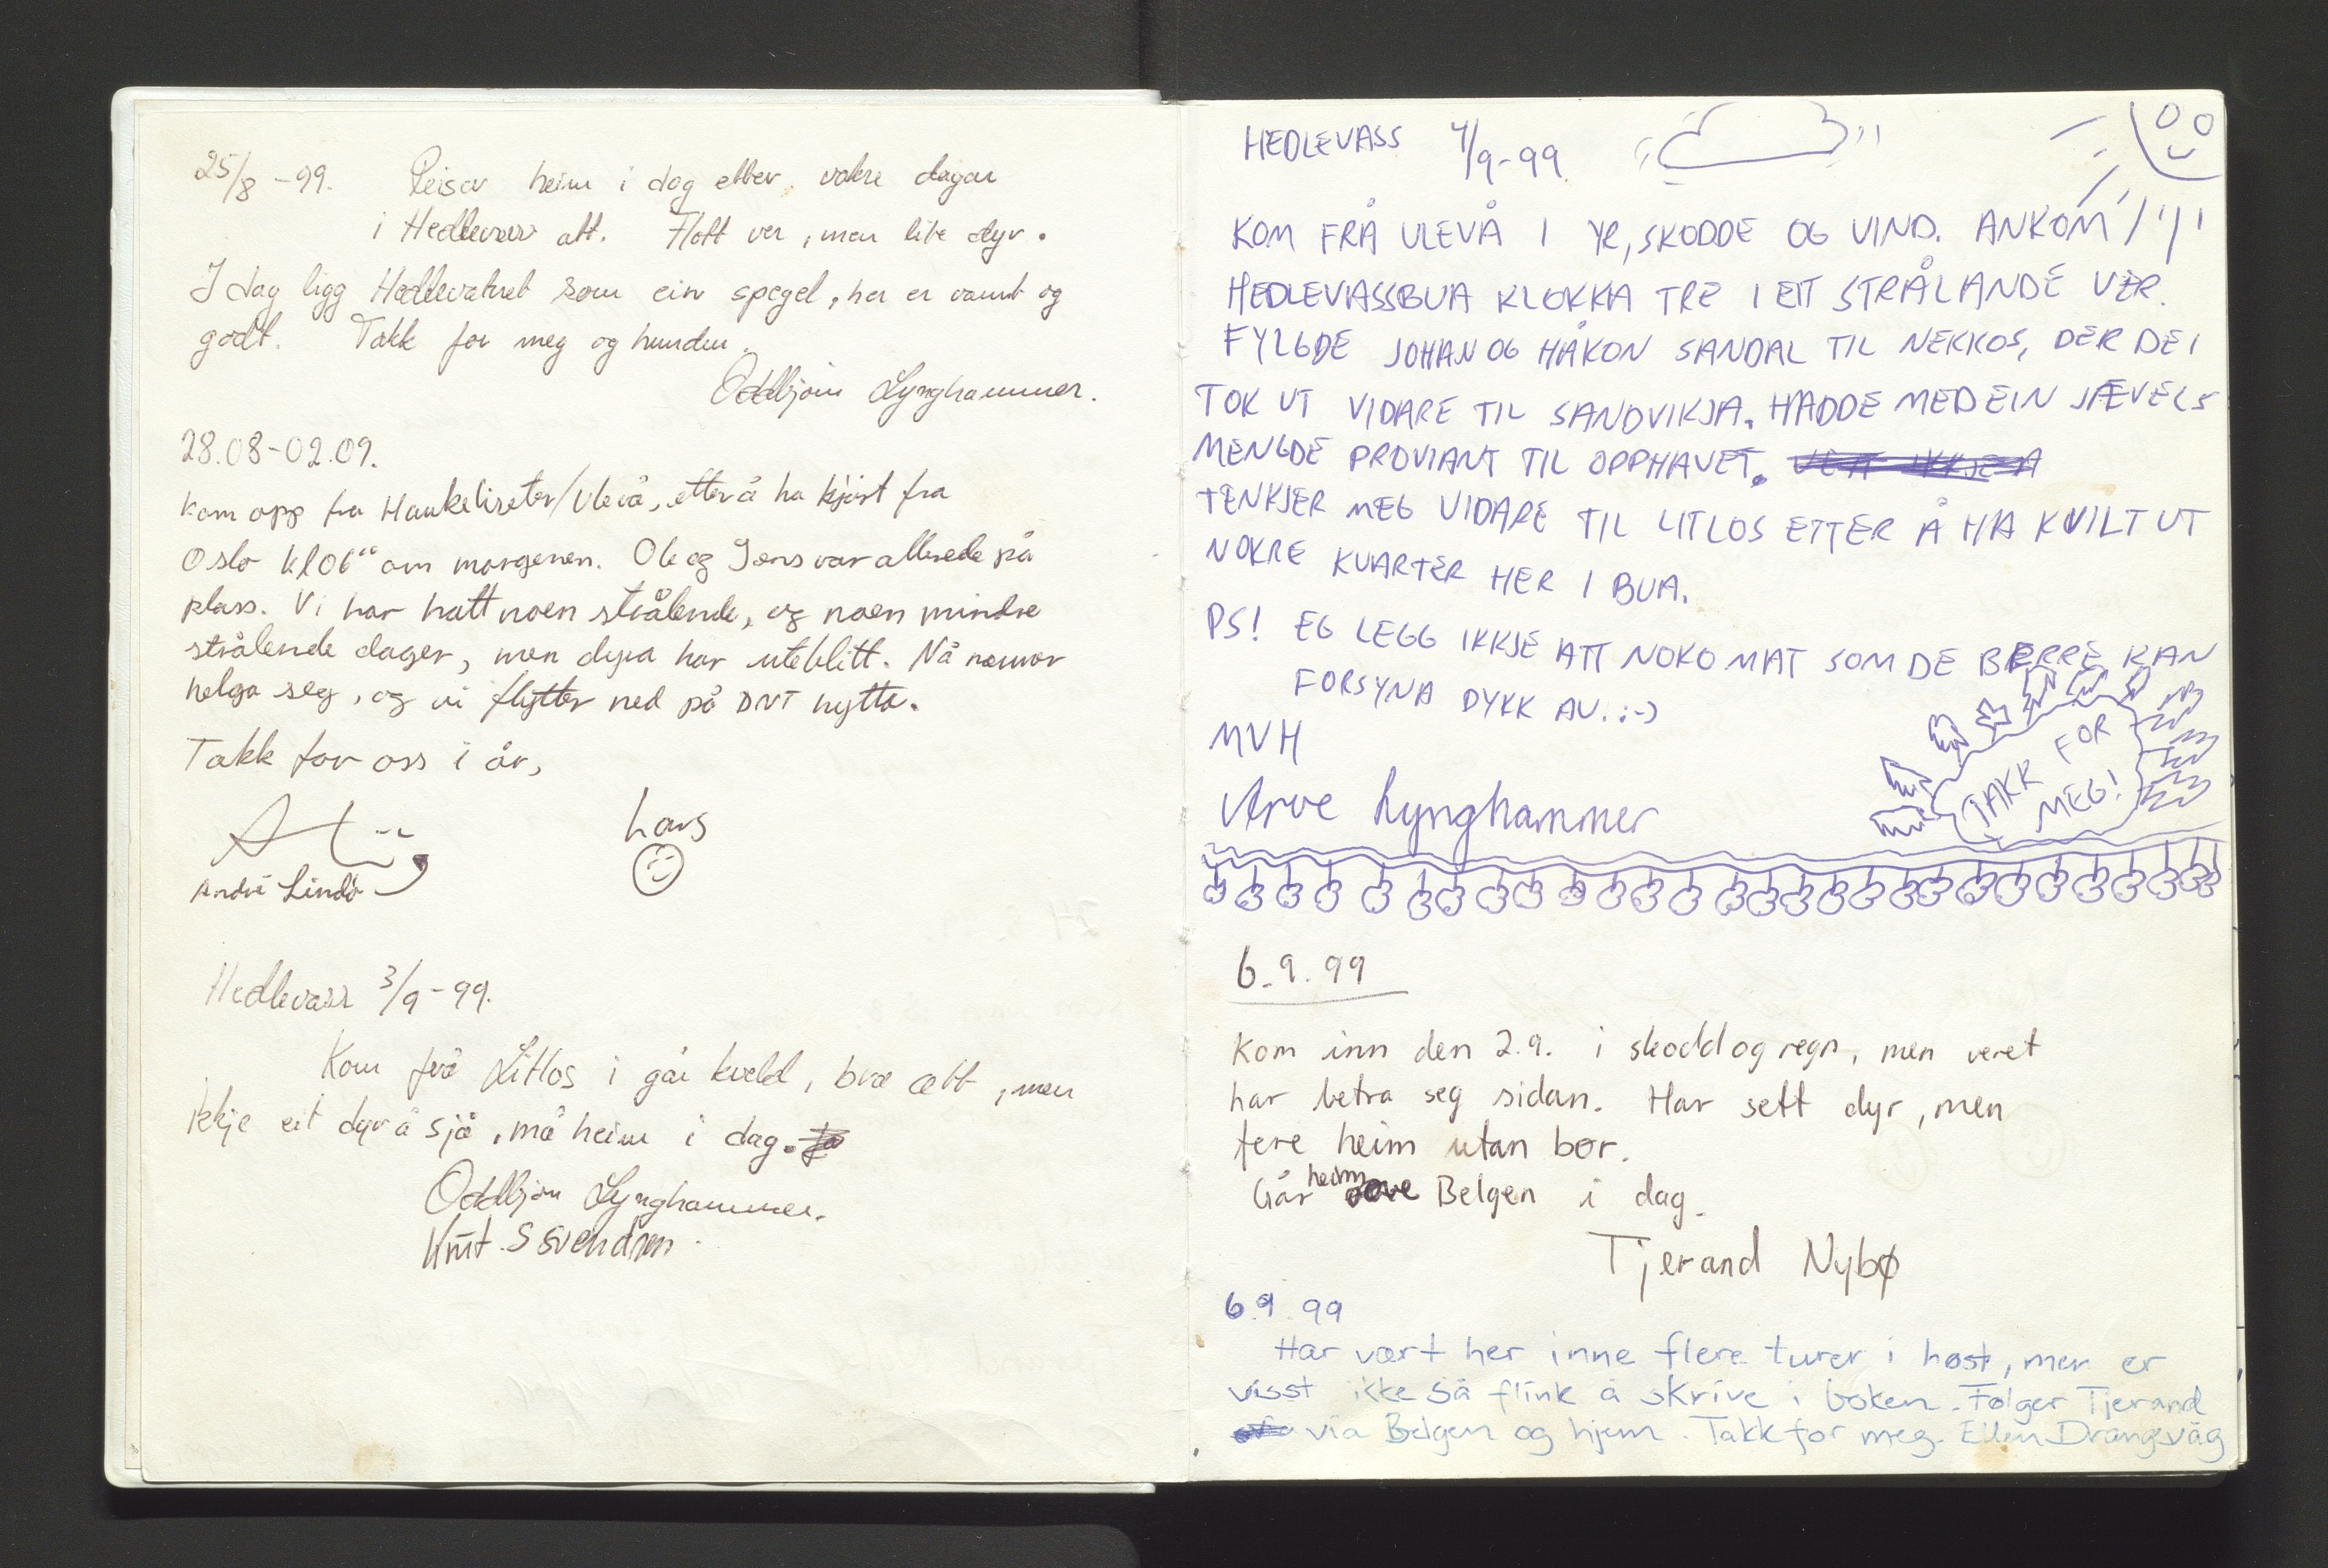 25/8 -99. Reiser heim i dag etter vakre dagar
i Hedlevass att. Flott ver, men lite dyr.
I dag ligg Hedlevatnet som ein spegel, her er varmt og
godt. Takk for meg og hunden.
Oddbjørn Lynghammer.
28.08-02.09.
Kom opp fra Haukeliseter/Ulevå, etter å ha kjørt fra
Oslo kl 06°° om morgenen. Ole og Jens var allerede på
plass. Vi har hatt noen strålende, og noen mindre
strålende dager, men dyra har uteblitt. Nå nærmer
helga seg, og vi flytter ned på DNT hytta.
Takk for oss i år,
Lars
André Lindö
Hedlevass 3/9-99.
Kom frå Litlos i går kveld, bra ætt, men
ikkje eit dyr å sjå, må heim i dag.
Oddbjørn Lynghammer.
Knut. S Svendsen.
HEDLEVASS 4/9-99
KOM FRÅ ULEVÅ I YR, SKODDE OG VIND. ANKOM
HEDLEVASSBUA KLOKKA TRE I EIT STRÅLANDE VER.
FYLGDE JOHAN OG HÅKON SANDAL TIL NEKKOS, DER DEI
TOK UT VIDARE TIL SANDVIKJA. HADDE MED EIN JÆVELS
MENGDE PROVIANT TIL OPPHAVET.
TENKJER MEG VIDARE TIL LITLOS ETTER Å HA KVILT UT
NOKRE KVARTER HER I BUA.
PS! EG LEGG IKKJE ATT NOKO MAT SOM DE BERRE KAN
FORSYNA DYKK AV. :-)
MVH
TAKK FOR
MEG!
Arve Lynghammer
6.9.99
Kom inn den 2.9. i skodd og regn, men veret
har betra seg sidan. Har sett dyr, men
fere heim utan bør.
Går heim over Belgen i dag.
Tjerand Nybø
6.9.99
Har vært her inne flere turer i høst, men er
visst ikke så flink å skrive i boken. Følger Tjerand
via Belgen og hjem. Takk for meg. Ellen Drangsvåg